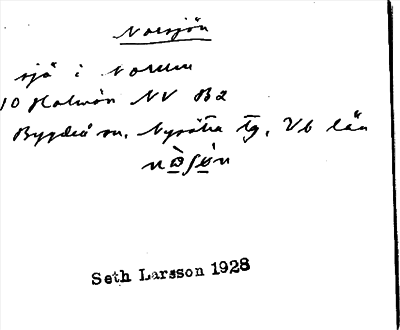 Norsjön
sjö i Norum
10 Holmön NV B2
Bygdeå sn. Nysätra tg. Vb län
nò̱ʃø̱̀n
Seth Larsson 1928